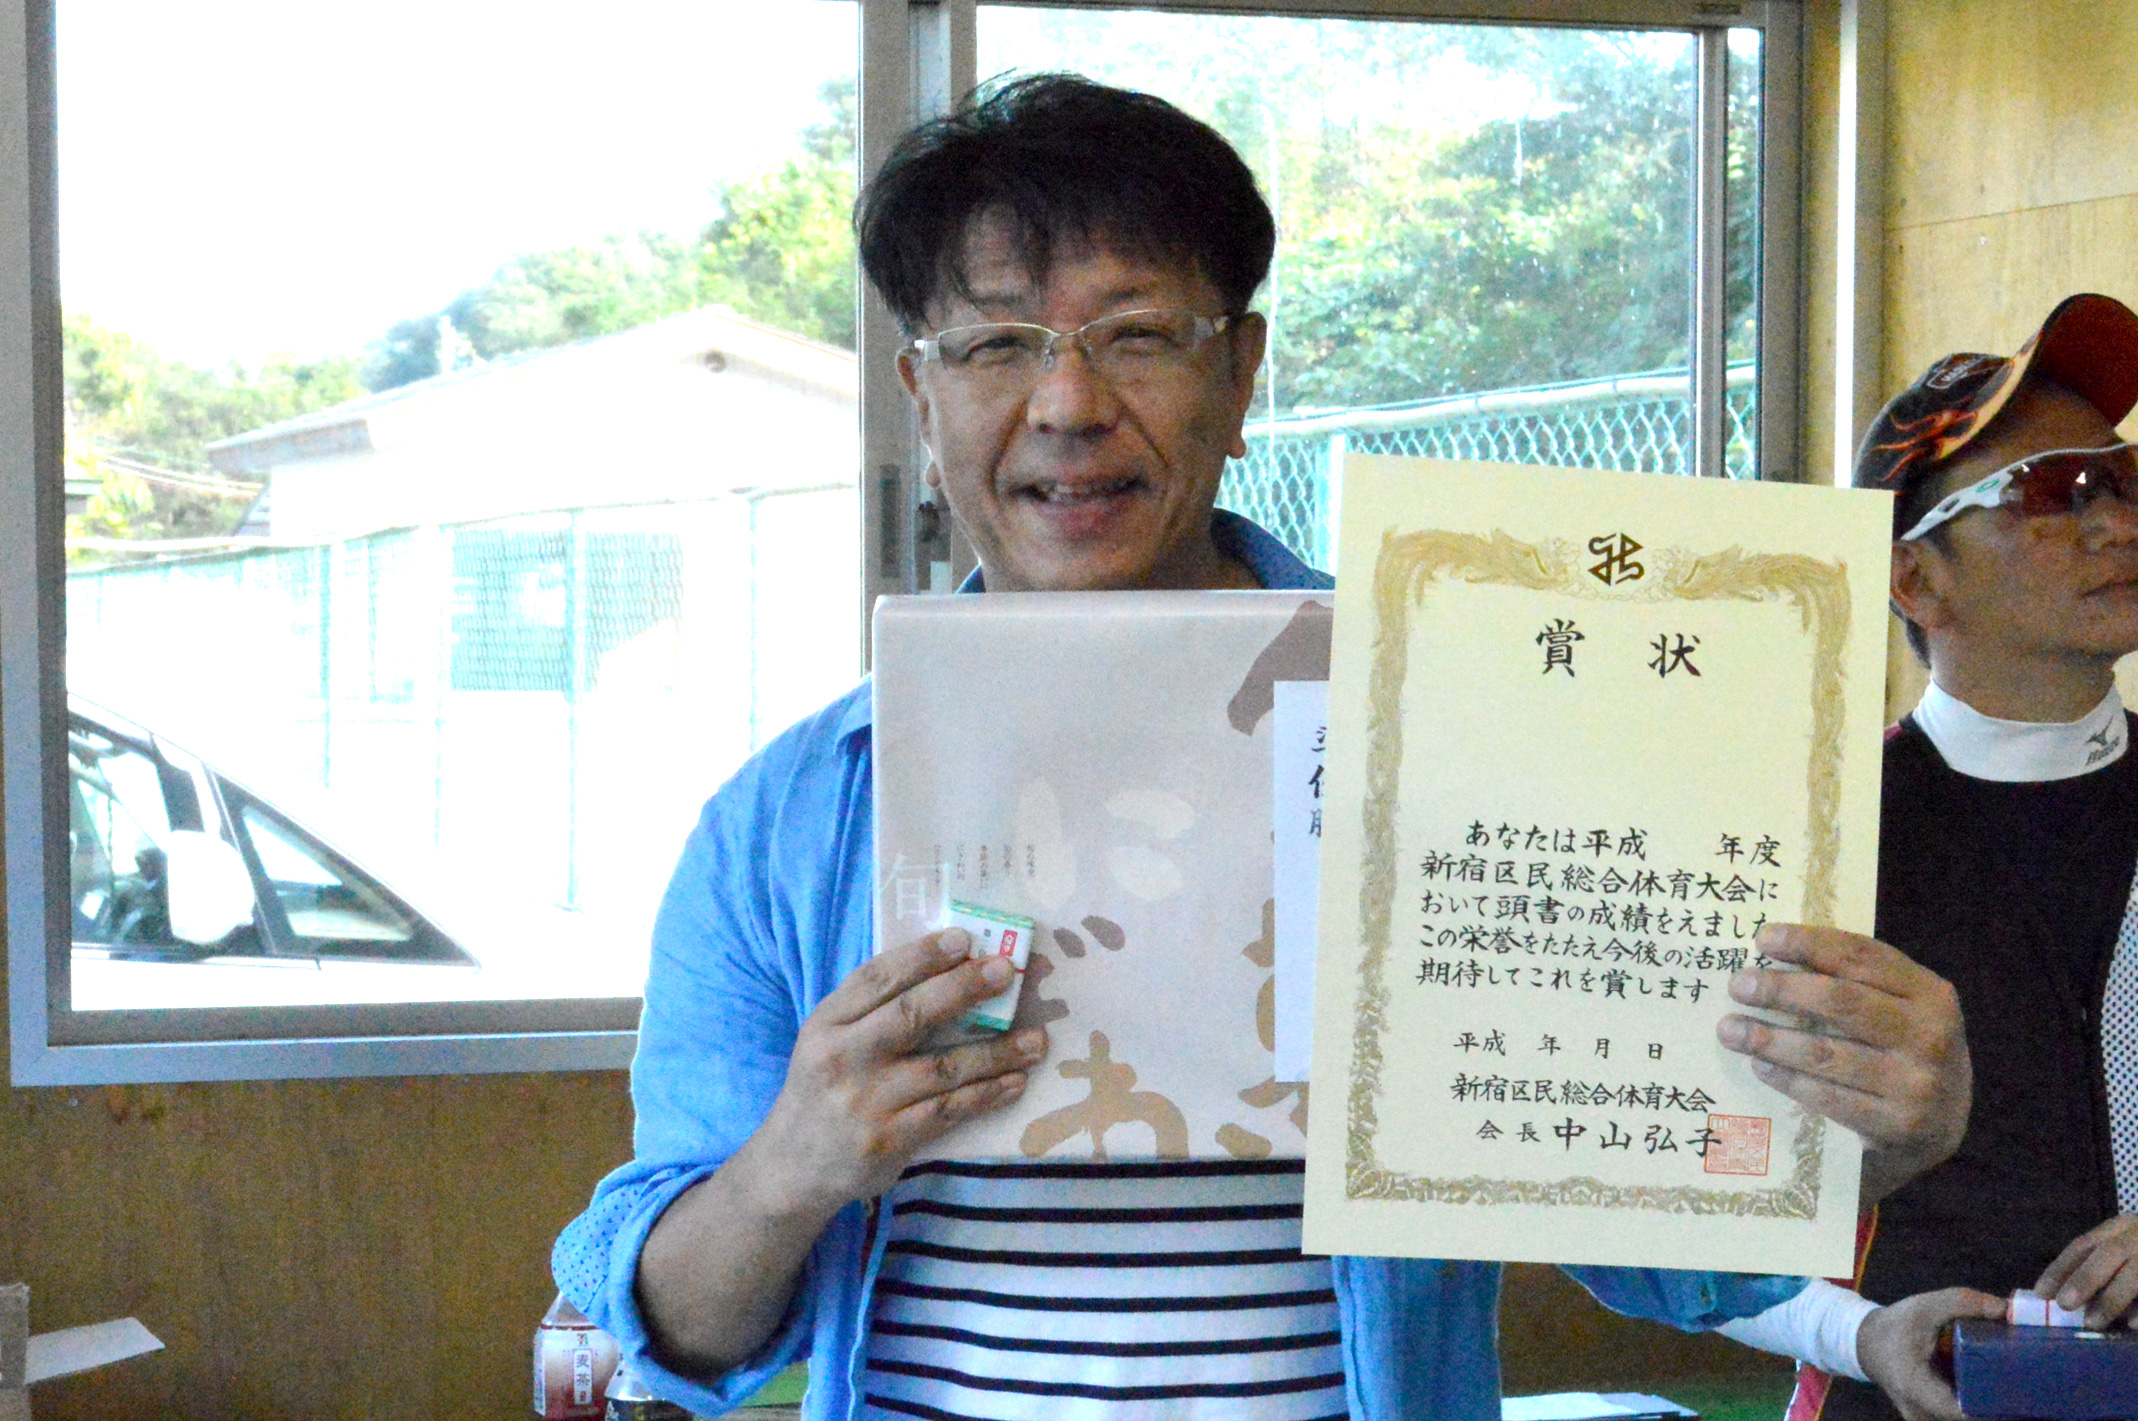 賞状
あなたは平成　年度
新宿区民総合体育大会に
おいて頭書の成績をえました
この栄誉をたたえ今後の活躍を
期待してこれを賞します
平成　年　月　日
新宿区民総合体育大会
会長 中山弘子
旬
麦茶